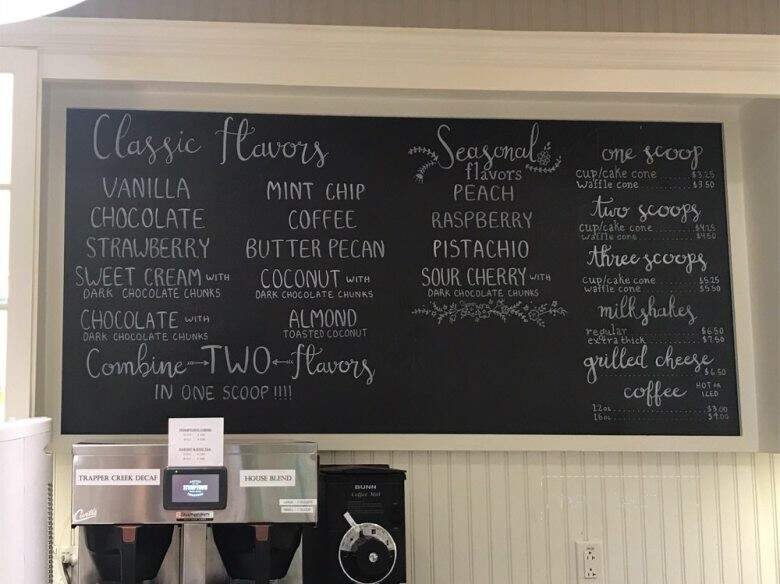 Classic flavors
VANILLA
CHOCOLATE
STRAWBERRY
SWEET CREAM WITH
DARK CHOCOLATE CHUNKS
CHOCOLATE WITH
DARK CHOCOLATE CHUNKS
MINT CHIP
COFFEE
BUTTER PECAN
COCONUT WITH
DARK CHOCOLATE CHUNKS
ALMOND
TOASTED COCONUT
Combine TWO flavors
IN ONE SCOOP !!!!
Seasonal
flavors
PEACH
RASPBERRY
PISTACHIO
SOUR CHERRY WITH
DARK CHOCOLATE CHUNKS
one scoop
cup/cake cone $3.25
waffle cone $3.50
two scoops
cup/cake cone $4.25
waffle cone $4.50
three scoops
cup/cake cone $5.25
waffle cone $5.50
milkshakes
regular $6.50
extra thick $7.50
grilled cheese
$6.50
coffee HOT OR
ICED
12oz $3.00
16oz $4.00
TRAPPER CREEK DECAF
HOUSE BLEND
STUMPTOWN
Curtis
BUNN
Coffee Mill